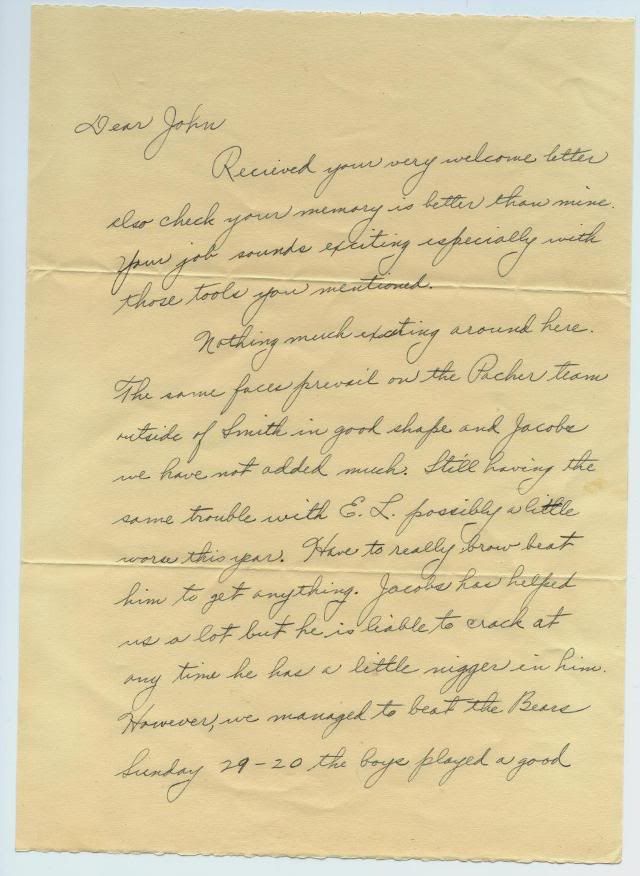 Dear John
Recieved your very welcome letter
also check your memory is better than mine.
Your job sounds exciting especially with
those tools you mentioned.
Nothing much exciting around here.
The same faces prevail on the Packer team
outside of Smith in good shape and Jacobs
we have not added much. Still having the
same trouble with E. L. possibly a little
worse this year. Have to really brow beat
him to get anything. Jacobs has helped
us a lot but he is liable to crack at
any time he has a little nigger in him.
However, we managed to beat the Bears
Sunday 29-20 the boys played a good